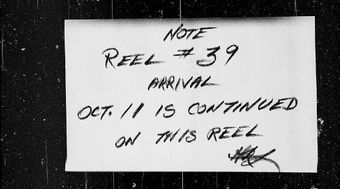 NOTE
REEL # 39
ARRIVAL
OCT. 11 IS CONTINUED
ON THIS REEL